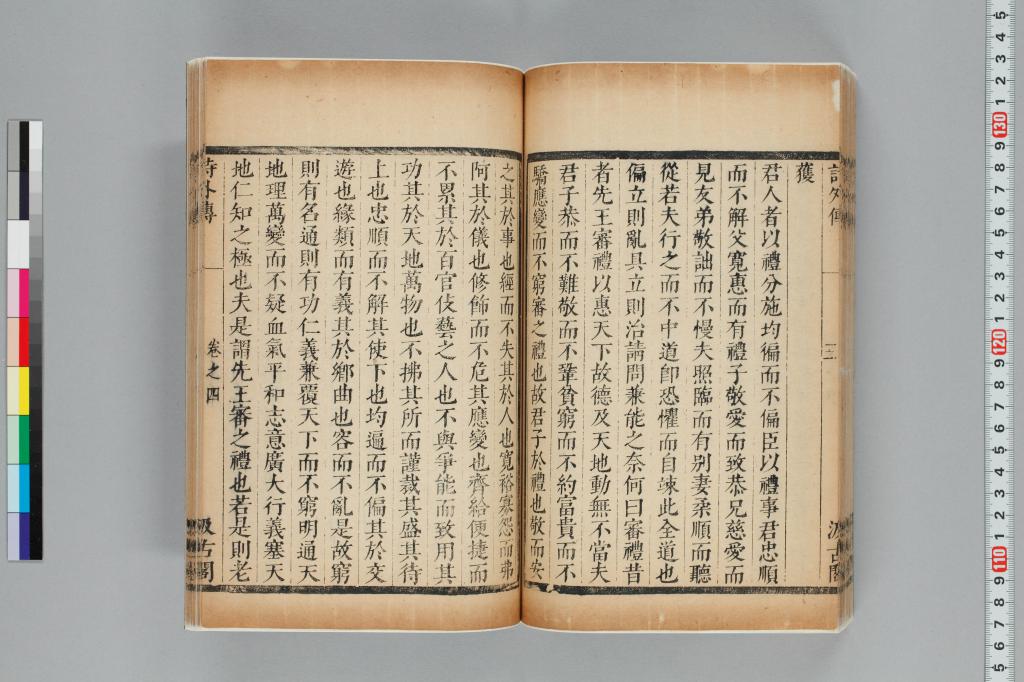 詩外傳
三
汲古閣
獲
君人者以禮分施均徧而不偏臣以禮事君忠順
而不解父寬惠而有禮子敬愛而致恭兄慈愛而
見友弟敬詘而不慢夫照臨而有別妻柔順而聽
從若夫行之而不中道卽恐懼而自竦此全道也
偏立則亂具立則治請問兼能之奈何曰審禮昔
者先王審禮以惠天下故德及天地動無不當夫
君子恭而不難敬而不鞏貧窮而不約富貴而不
驕應變而不窮審之禮也故君子於禮也敬而安
之其於事也經而不失其於人也寬裕寡怨而弗
阿其於儀也修飾而不危其應變也齊給便捷而
不累其於百官伎藝之人也不與爭能而致用其
功其於天地萬物也不拂其所而謹裁其盛其待
上也忠順而不解其使下也均遍而不偏其於交
遊也緣類而有義其於鄉曲也容而不亂是故窮
則有名通則有功仁義兼覆天下而不窮明通天
地理萬變而不疑血氣平和志意廣大行義塞天
地仁知之極也夫是謂先王審之禮也若是則老
詩外傳
卷之四
汲古閣